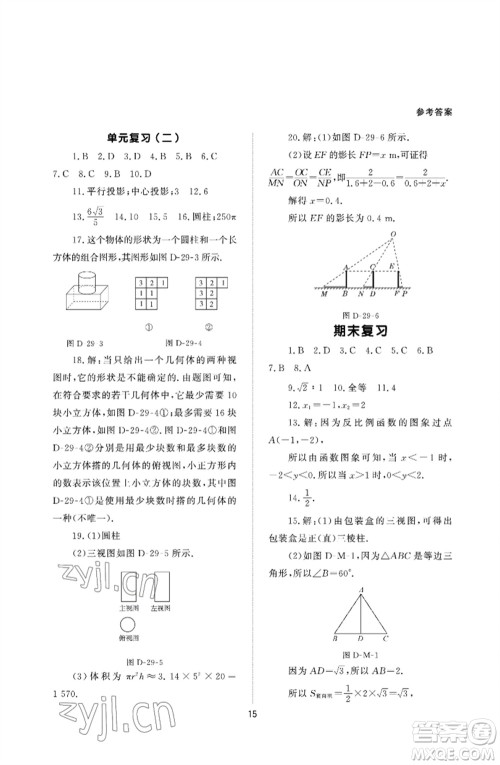 参考答案
单元复习（二）
1.B 2.D 3.D 4.A 5.C 6.B
7.C 8.A 9.C 10.B
11.平行投影；中心投影 12.6
13.6√3/5 14.10 15.9 16.圆柱；250π
17.这个物体的形状为一个圆柱和一个长
方体的组合图形，其俯视图如图 D-29-3 所示.
图 D-29-3
3 2 1
3 2 1
1 1
①
②
图 D-29-4
18.解：当只给出一个几何体的两种视
图时，
在符合要求的几何体中，最少需要 10
块小立方体，如图 D-29-4①；最多需要 16 块
小立方体，如图 D-29-4②.
图 D-29-4①②分别是用最少块数和最多块
方体搭的几何体的俯视图，小正方形内的数
数表示该位置上小立方体的个数，其中图
D-29-4①是使用最少块数的小立方体搭法中
的一种(不唯一).
19.(1)圆柱
(2)三视图如图 D-29-5 所示.
主视图
左视图
俯视图
图 D-29-5
(3)体积为 πr²h≈3.14×5²×20=
1 570.
20.解：(1)如图 D-29-6 所示.
(2)设 EF 的影长 FP=x m,可得
AC/MN=OC/ON=CE/NP,即 2/(1.6+2-0.6)=2/(0.6+2+x).
解得 x=0.4.
所以 EF 的影长为 0.4 m.
O
A
C
E
M
B
N
D
F
P
图 D-29-6
期末复习
1.B 2.C 3.B 4.A 5.D 6.C
7.B 8.A
9.√2:1 10.全等 11.4
12.x₁=-1,x₂=2
13.解：因为反比例函数的图象过点
A(-1,-2),
所以由函数图象可知，当 x>1 时，
-2<y<0 或 0<y<2.
14.1/2
15.解：(1)由包装盒的三视图，可得出
包装盒是正(直)三棱柱.
(2)如图 D-M-1,可得△ABC 是等边三角
形，所以∠B=60°.
A
B
D
C
图 D-M-1
所以 AD=√3,
所以 S=1/2×2×√3=√3,
15
zyjl.cn
zyjl.cn
答案圈
MXQE.COM